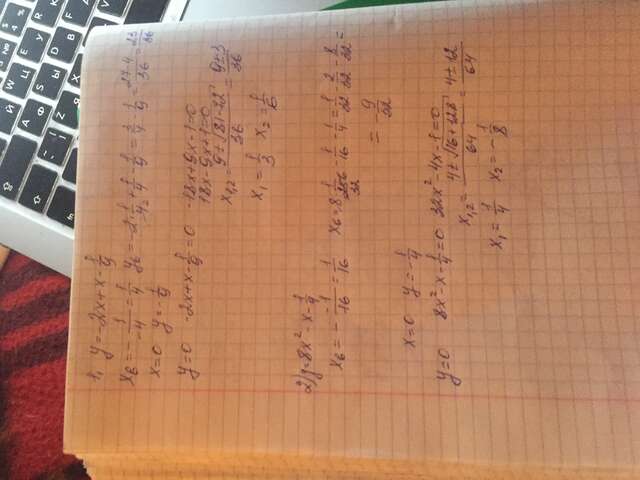 1, y=-2x+x-1/9
x₆=-1/-4=1/4 y₆=-2·1/4+1/4-1/9=3/4-1/9=27-4/36=23/36
x=0 y=-1/9
y=0 -2x+x-1/9=0 -18x+9x-1=0
18x-9x+1=0
x₁,₂=9±√81-72/36=9±3/36
x₁=1/3 x₂=1/6
2) y=8x²-x-1/4
x₆=--1/16=1/16 x₆=8·1/256-1/16-1/4=1/32-2/32-8/32=
32
=-9/32
x=0 y=-1/4
y=0 8x²-x-1/4=0 32x²-4x-1=0
x₁,₂=4±√16+128/64=4±12/64
x₁=1/4 x₂=-1/8